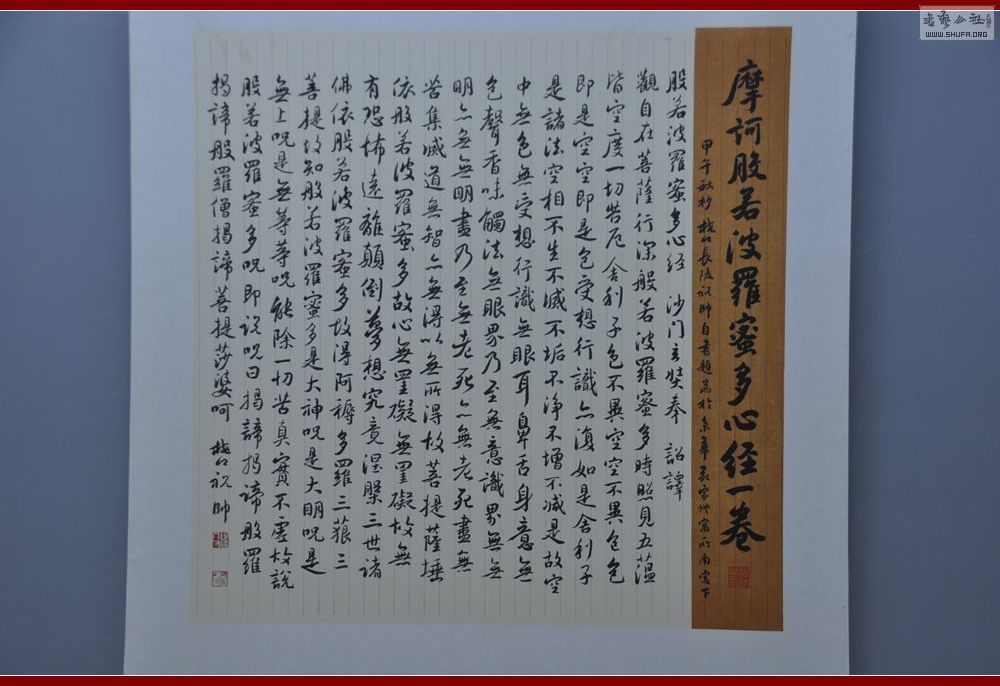 摩訶般若波羅蜜多心经一卷
甲午秋杪
長陵祝帥自書題耑於
南窗下
般若波羅蜜多心经 沙门玄奘奉 詔譯
觀自在菩薩行深般若波羅蜜多時照見五蕴
皆空度一切苦厄舍利子色不異空空不異色色
即是空空即是色受想行識亦復如是舍利子
是諸法空相不生不滅不垢不净不增不减是故空
中無色無受想行識無眼耳鼻舌身意無
色聲香味觸法無眼界乃至無意識界無無
明亦無無明盡乃至無老死亦無老死盡無
苦集滅道無智亦無得以無所得故菩提薩埵
依般若波羅蜜多故心無罣礙無罣礙故無
有恐怖遠離顛倒夢想究竟涅槃三世诸
佛依般若波羅蜜多故得阿耨多羅三藐三
菩提故知般若波羅蜜多是大神呪是大明呪是
無上呪是無等等呪能除一切苦真實不虚故説
般若波羅蜜多呪即说呪曰揭諦揭諦般羅
揭諦般羅僧揭諦菩提莎婆呵 祝帥
書藝公社
WWW.SHUFA.ORG